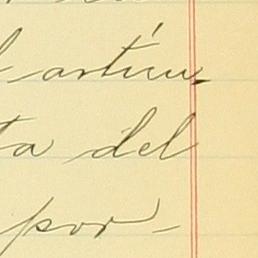 l artícu-
ta del
por-